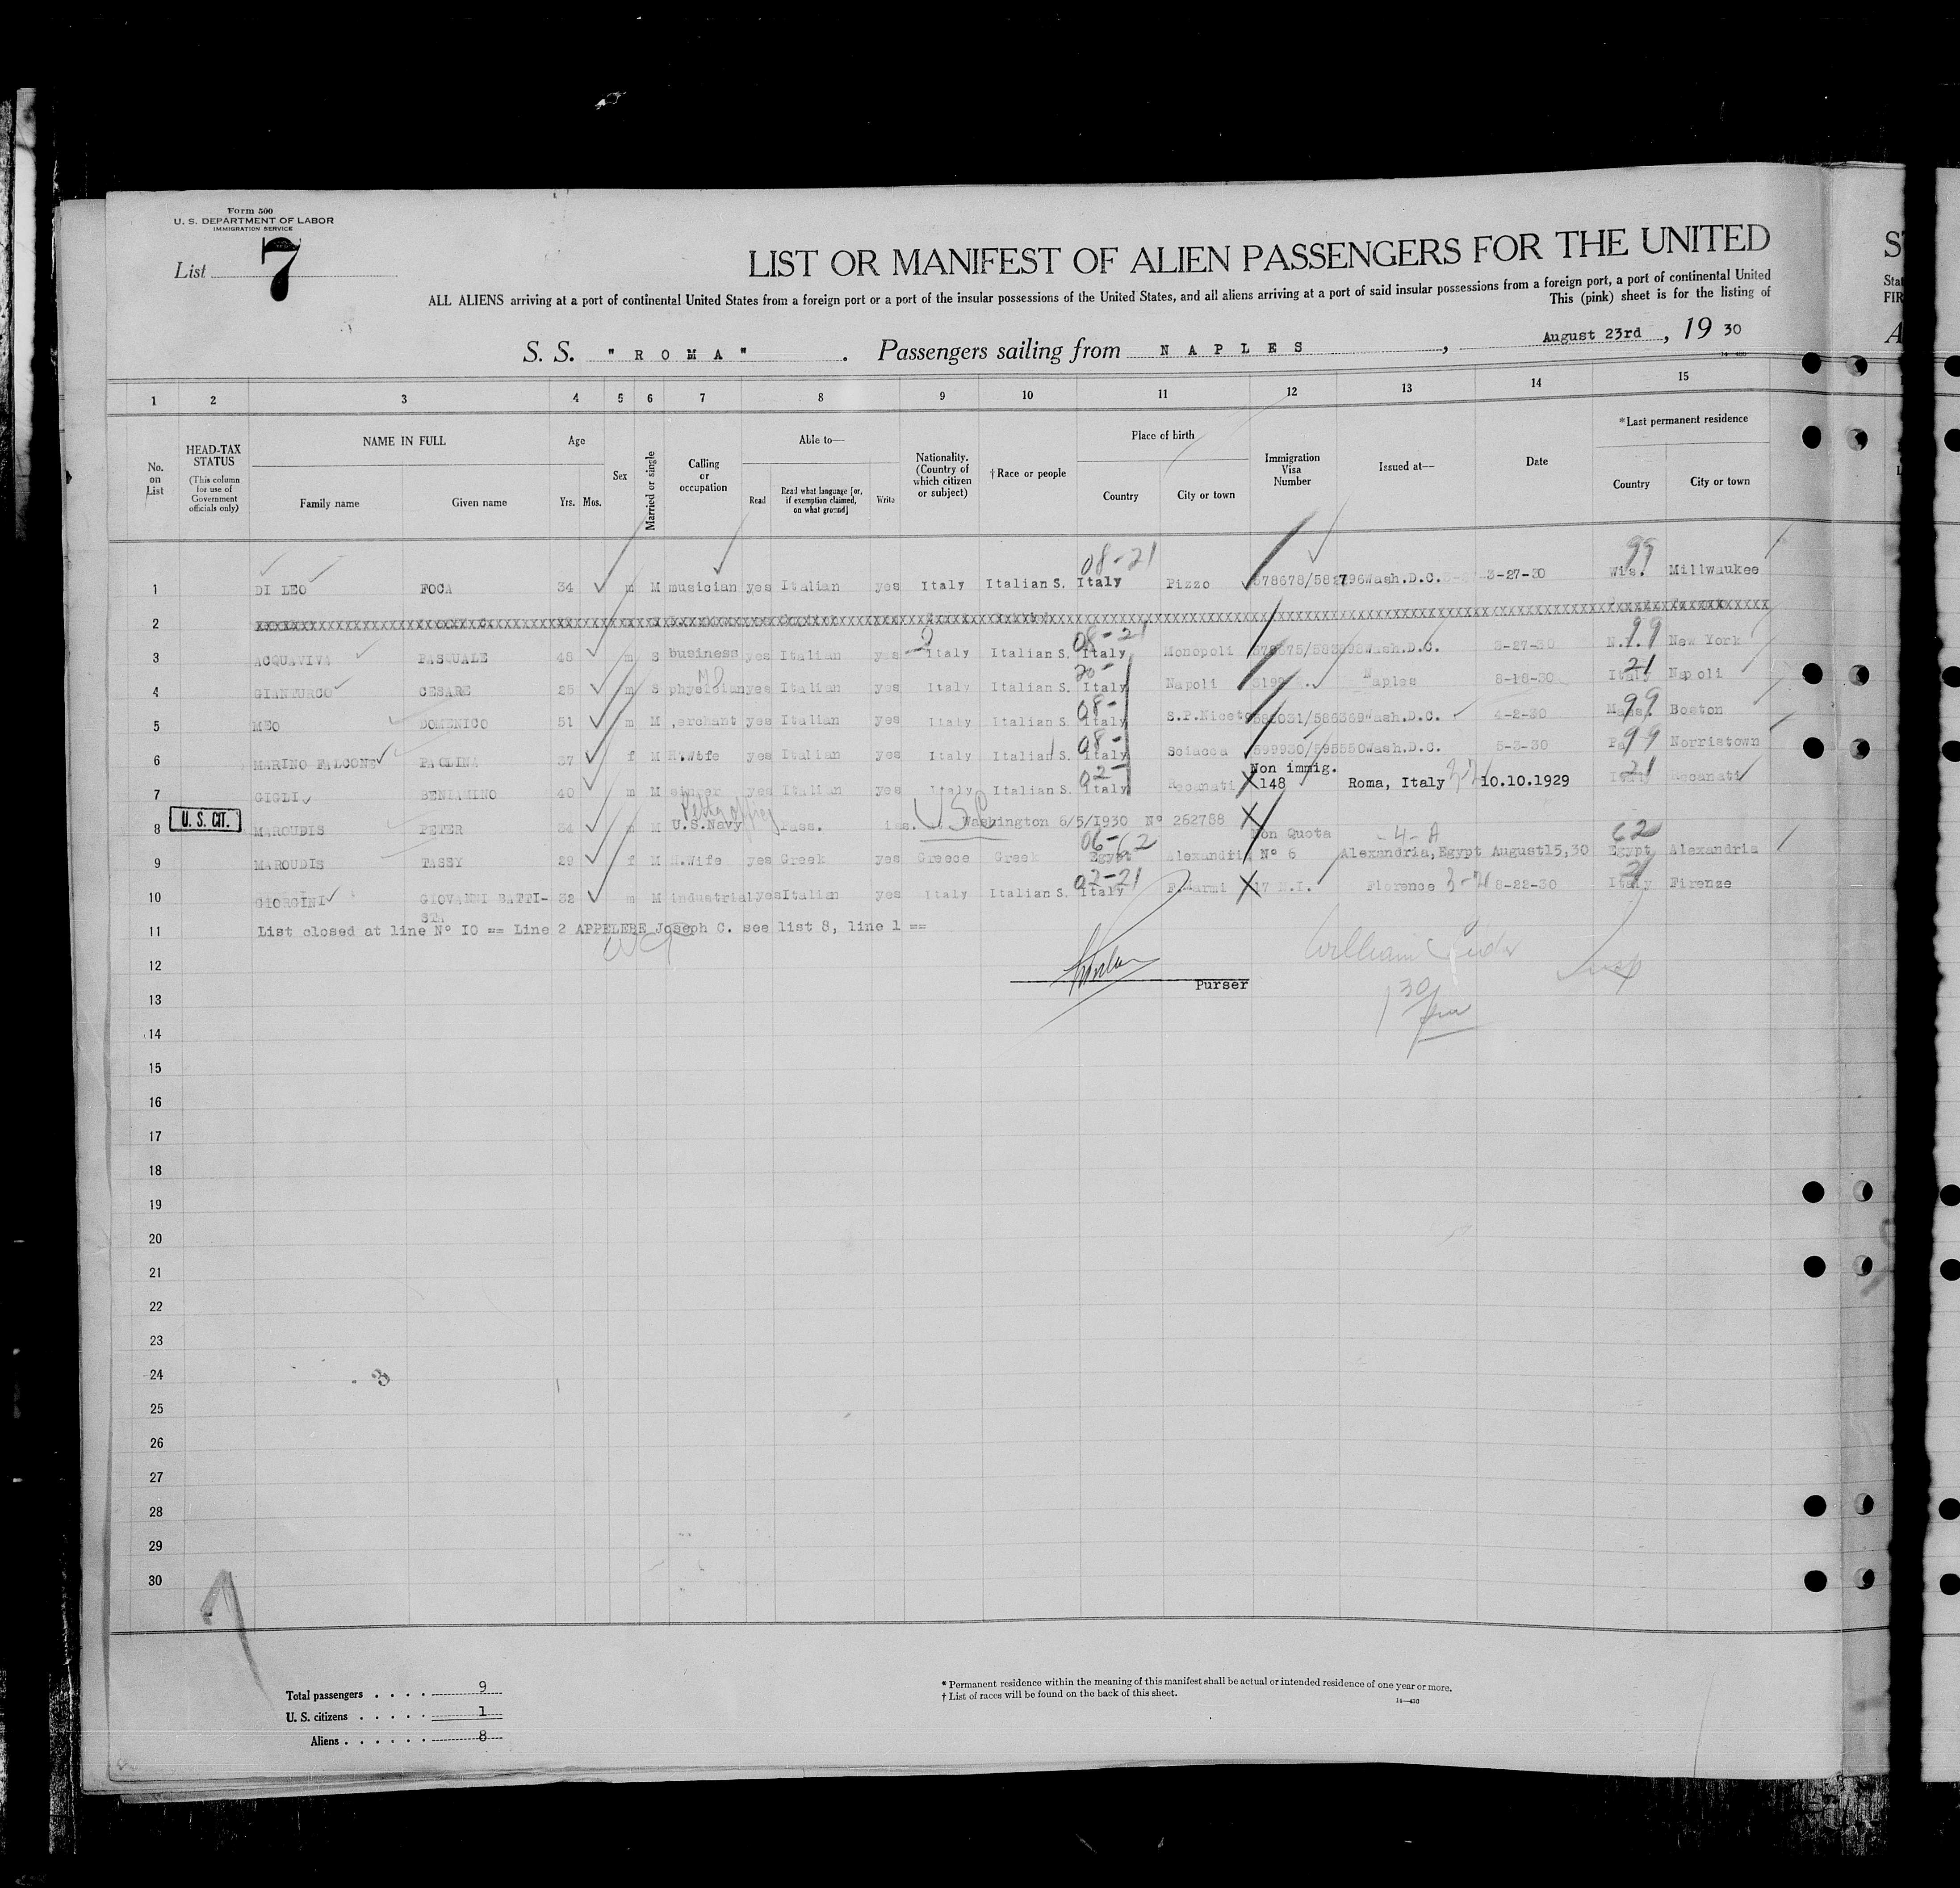 Form 500
U. S. DEPARTMENT OF LABOR
IMMIGRATION SERVICE
List 7
LIST OR MANIFEST OF ALIEN PASSENGERS FOR THE UNITED
ALL ALIENS arriving at a port of continental United States from a foreign port or a port of the insular possessions of the United States, and all aliens arriving at a port of said insular possessions from a foreign port, a port of continental United
This (pink) sheet is for the listing of
S. S. "ROMA" . Passengers sailing from NAPLES , August 23rd , 19 30
1 2 3 4 5 6 7 8 9 10 11 12 13 14 15
No. on List
HEAD-TAX STATUS (This column for use of Government officials only)
NAME IN FULL
Family name Given name
Age
Yrs. Mos.
Sex
Married or single
Calling or occupation
Able to—
Read Read what language [or, if exemption claimed, on what ground] Write
Nationality. (Country of which citizen or subject)
†Race or people
Place of birth
Country City or town
Immigration Visa Number
Issued at—
Date
*Last permanent residence
Country City or town
08-21 99
1 DI LEO FOCA 34 m M musician yes Italian yes Italy Italian S. Italy Pizzo Wash.D.C. 3-27-30 Wis. Millwaukee
2
08-21 99
3 ACQUAVIVA PASQUALE 48 m S business yes Italian yes Italy Italian S. Italy Monopoli Wash.D.C. 3-27-30 N.Y. New York
4 GIANTURCO CESARE 25 m S physician yes Italian yes Italy Italian S. Italy Napoli Naples 8-18-30 Italy 21 Napoli
08- 99
5 MEO DOMENICO 51 m M ,erchant yes Italian yes Italy Italian S. Italy Wash.D.C. 4-2-30 Mass. Boston
08- 99
6 MARINO FALCONE PAOLINA 37 f M H.Wife yes Italian yes Italy Italian S. Italy Sciacca 599930/595550 Wash.D.C. 5-3-30 Pa. Norristown
02- Non immig. 21
7 GIGLI BENIAMINO 40 m M singer yes Italian yes Italy Italian S. Italy Recanati 148 Roma, Italy 10.10.1929 Italy Recanati
U. S. CIT.
8 MAROUDIS PETER 34 m M U.S.Navy Pass. iss. USC Washington 6/5/1930 Nº 262788
06-62 Non Quota -4-A 62
9 MAROUDIS TASSY 29 f M H.Wife yes Greek yes Greece Greek Egypt Alexandria Nº 6 Alexandria,Egypt August15,30 Egypt Alexandria
02-21 21
10 GIORGINI GIOVANNI BATTI- 32 m M industrial yes Italian yes Italy Italian S. Italy F.Marmi 17 N.I. Florence 8-22-30 Italy Firenze
STA
11 List closed at line Nº IO == Line 2 APPELEBE Joseph C. see list 8, line 1 ==
12
Purser
13
14
15
16
17
18
19
20
21
22
23
24
25
26
27
28
29
30
Total passengers . . . . 9
U. S. citizens . . . . . 1
Aliens . . . . . . 8
* Permanent residence within the meaning of this manifest shall be actual or intended residence of one year or more.
† List of races will be found on the back of this sheet.